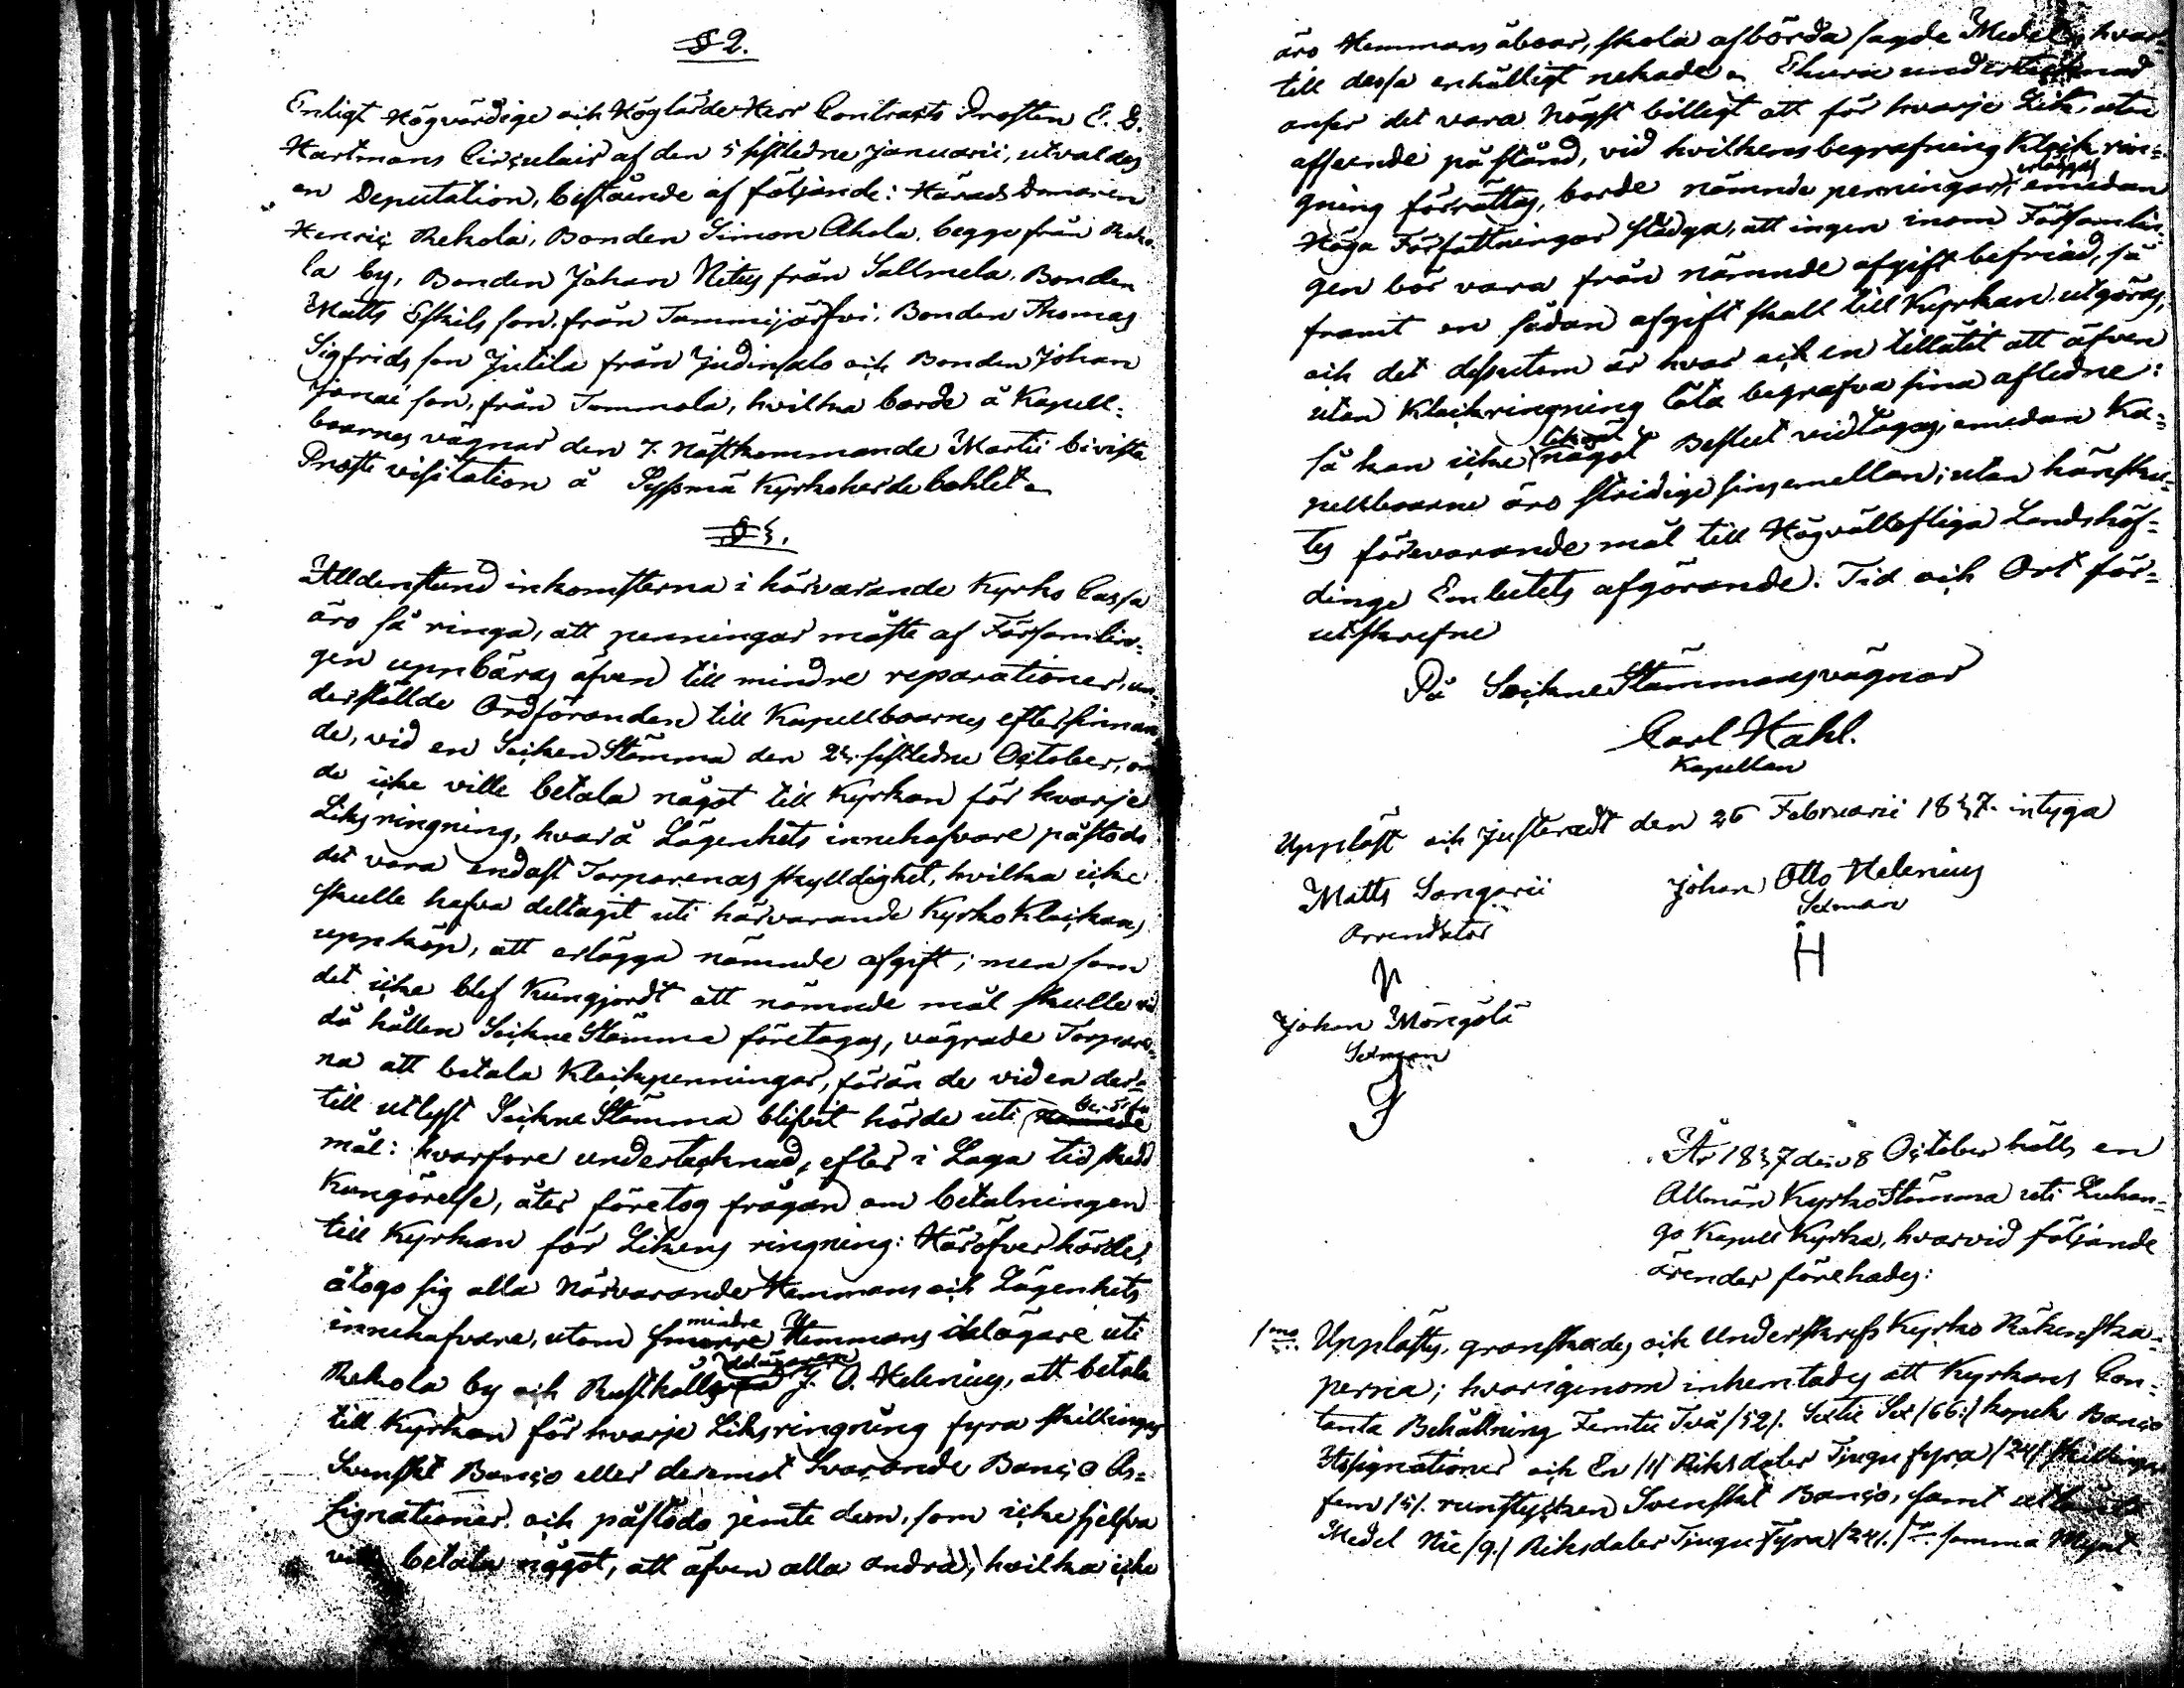 § 2.
Enligt Högvördige och Höglärde Herr Contracts Prosten E. G.
Hartmans Circulair af den 5 sistledne Januarii, utvaldes
en Deputation, bestående af följande: Härads Domaren
Henric Rekola, Bonden Simon Ahola, begge från Reko
la by, Bonden Johan Nitus från Sallmela, Bonden
Matts Eskils son, från Tammijärfvi, Bonden Thomas
Sigfrids son Jutila från Judinsalo och Bonden Johan
Jonae son, från Tommola, hvilka borde å Kapell=
boarnes vägnar den 7. nästkommande Martii bivista
Prosts visitation å Sysmä Kyrkoherde bohlet
§ 3.
Alldenstund inkomsterna i härvarande Kyrko Cassa
äro så ringa, att penningar måste af Församlin=
gen uppbäras äfven till mindre reparationer, un=
derställde Ordföranden till Kapellboarnes eftersinnan=
de, vid en Sockne Stämma den 23. sistledne October, om
de icke ville betala något till Kyrkan för hvarje
Liksringning, hvarå Lägenhets innehafvare påstodo
det vara endast Torparenas skylldighet, hvilka icke
skulle hafva deltagit uti härvarande Kyrko Klockans
uppköp, att erlägga nämnde afgift; men som
det icke blef Kungjordt att nämnde mål skulle vid
då hållen Sockne Stämma företagas, vägrade Torpare=
na att betala Klockpenningar, förän de vid en der=
till utlyst Sockne Stämma blifvit hörde uti
mål: hvarfore undertecknad, efter i Laga tid skedd
Kungörelse, åter företog frågan om betalningen
till Kyrkan för Likens ringning: Häröfver hörde,
åtogo sig alla närvarande Hemmans och Lägenhets
innehafvare, utom mindre Hemmans delägare uti
Rekola by och Rusthålls delägaren J. O. Helenius, att betala
till Kyrkan för hvarje Liksringning fyra skillingar
Svenskt Banco eller deremot svarande Banco As=
signationer, och påstodo jemte dem, som icke sjelfva
ville betala något, att äfven alla andra, hvilka icke
äro Hemmans åboar, skola afbörda sagde Medel, hvar=
till dessa enhälligt nekade. Ehuru undertecknad
anser det vara högst billigt att för hvarje Lik, utan
afseende på stånd, vid hvilkens begrafning Klock rin=
gning förrättas, borde nämnde penningar erläggas, emedan
Höga Författningar stadga, att ingen inom Församlin=
gen bör vara från nämnde afgift befriad, så
framt en sådan afgift skall till Kyrkan utgöras,
och det dessutom är hvar och en tillåtit att äfven
utan Klockringning låta begrafva sina afledne:
så kan icke likväl något Beslut vidtagas, emedan Ka=
pellboarne äro stridige sins emellan; utan hänskju=
tes förevarande mål till Högvällofliga Landshöf=
dinge Embetets afgörande. Tid och Ort för=
utskrefne
På Sockne Stämmans vägnar
Carl Hahl.
Kapellan
Uppläst och Justeradt den 26 Februarii 1837. intyga
Matts Songarii
Arrendator
Johan Otto Helenius
Sexman
H
Johan Mörigölä
Sexman
År 1837 den 8 October hölls en
Allmän Kyrko Stämma uti Luhan=
go Kapell Kyrka, hvarvid följande
ärender förehades:
1mo. Upplästes, granskades och Underskrefs Kyrko Räkenska=
perna; hvarigenom inhemtades att Kyrkans Con=
tanta Behållning Femtie Två /52/. Sextie Sex /66:/ kopek Banco
Assignationer och En /1/ Riksdaler Tjugu fyra /24/ skillingar
fem /5/. runstycken Svenskt Banco, samt utlånte
Medel Nie /9./ Riksdaler Tjugu Fyra /24/. samma Mynt